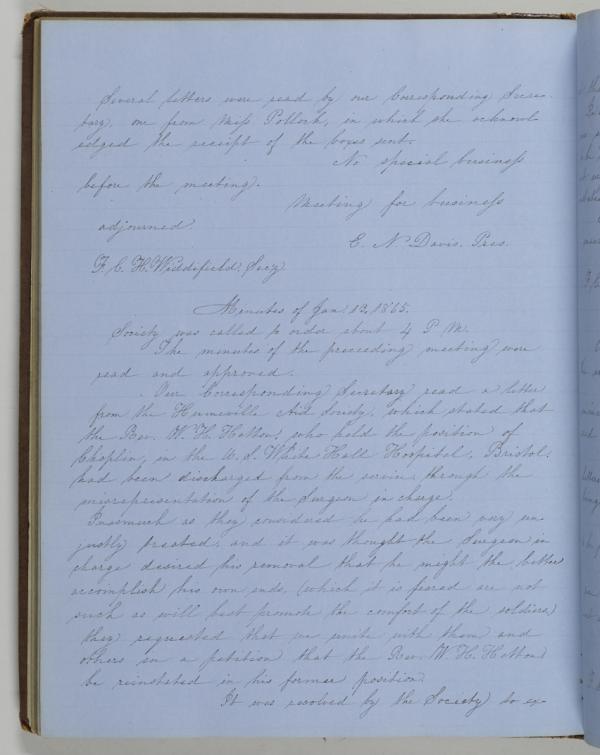 Several letters were read by our Corresponding Secre-
tary, one from Miss Pollock, in which she acknowl-
edged the receipt of the boxes sent.
No special business
before the meeting.
Meeting for business
adjourned.
E. N. Davis. Pres.
F. C. H. Widdifield. Secy
Minutes of Jan. 12, 1865.
Society was called to order about 4 P. M.
The minutes of the preceding meeting were
read and approved.
Our Corresponding Secretary read a letter
from the Aid Society, which stated that
the Rev. W. H. Hatton, who held the position of
Chaplin, in the U. S. White Hall Hospital, Bristol,
had been discharged from the service through the
misrepresentation of the Surgeon in charge.
Inasmuch as they considered he had been very un-
justly treated, and it was thought the Surgeon in
charge desired his removal that he might the better
accomplish his own ends, (which it is feared are not
such as will best promote the comfort of the soldiers)
they requested that we unite with them and
others in a petition that the Rev. W. H. Hatton
be reinstated in his former position.
It was resolved by the Society to ex-